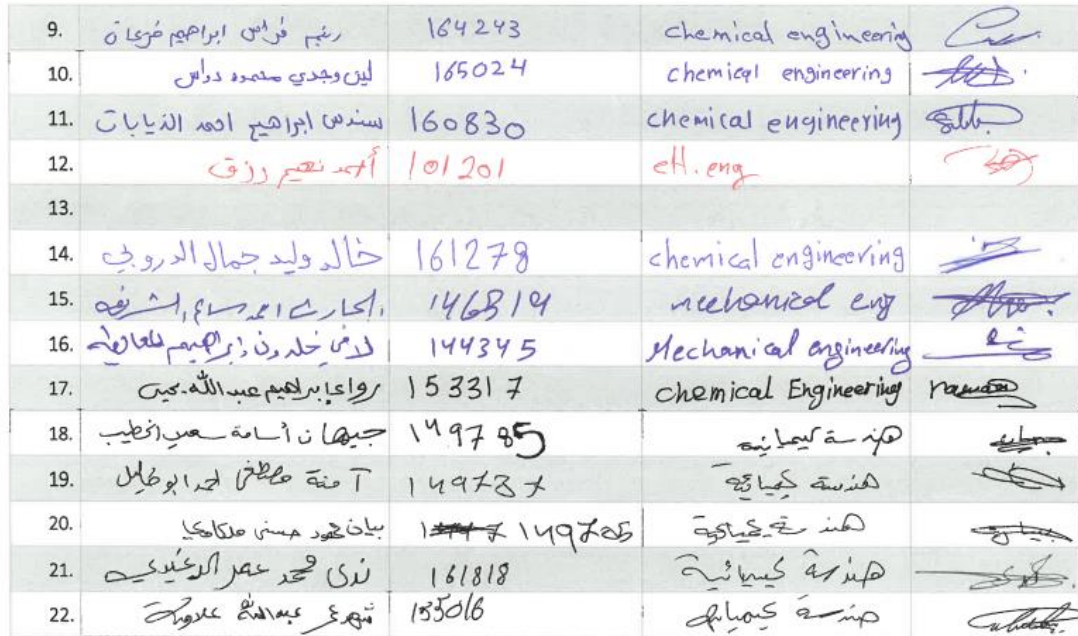 9. رنيم فراس ابراهيم فريحات 164243 chemical engineering
10. لين وجدي محمود دواس 165024 chemical engineering
11. سندس ابراهيم احمد الذيابات 160830 chemical engineering
12. أحمد نعيم رزق 101201 eH.eng
13.
14. خالد وليد جمال الدروبي 161278 chemical engineering
15. احمد 146819 mechanical eng
16. خلدون إبراهيم 144345 Mechanical engineering
17. ابراهيم عبدالله يحيى 153317 chemical Engineering rawan
18. جيهان أسامة سعيد الخطيب 149785 هندسة كيميائية
19. آمنة مصطفى احمد ابو خليل 149737 هندسة كيميائية
20. بيان محمود حسني ملكاوي 149725 هندسة كيميائية
21. ندى محمد عمر 161818 هندسة كيميائية
22. عبدالله علاونة 135016 هندسة كيميائية